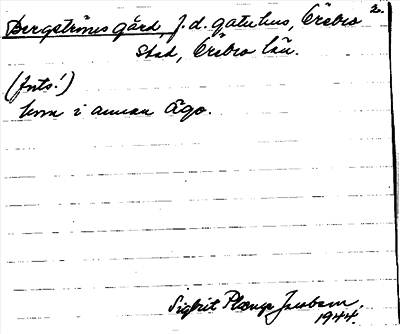 2.
Bergströms gård, f.d. gatuhus, Örebro
stad, Örebro län.
(forts!)
kom i annan ägo.
Sigbrit Plænge Jacobson,
1944.